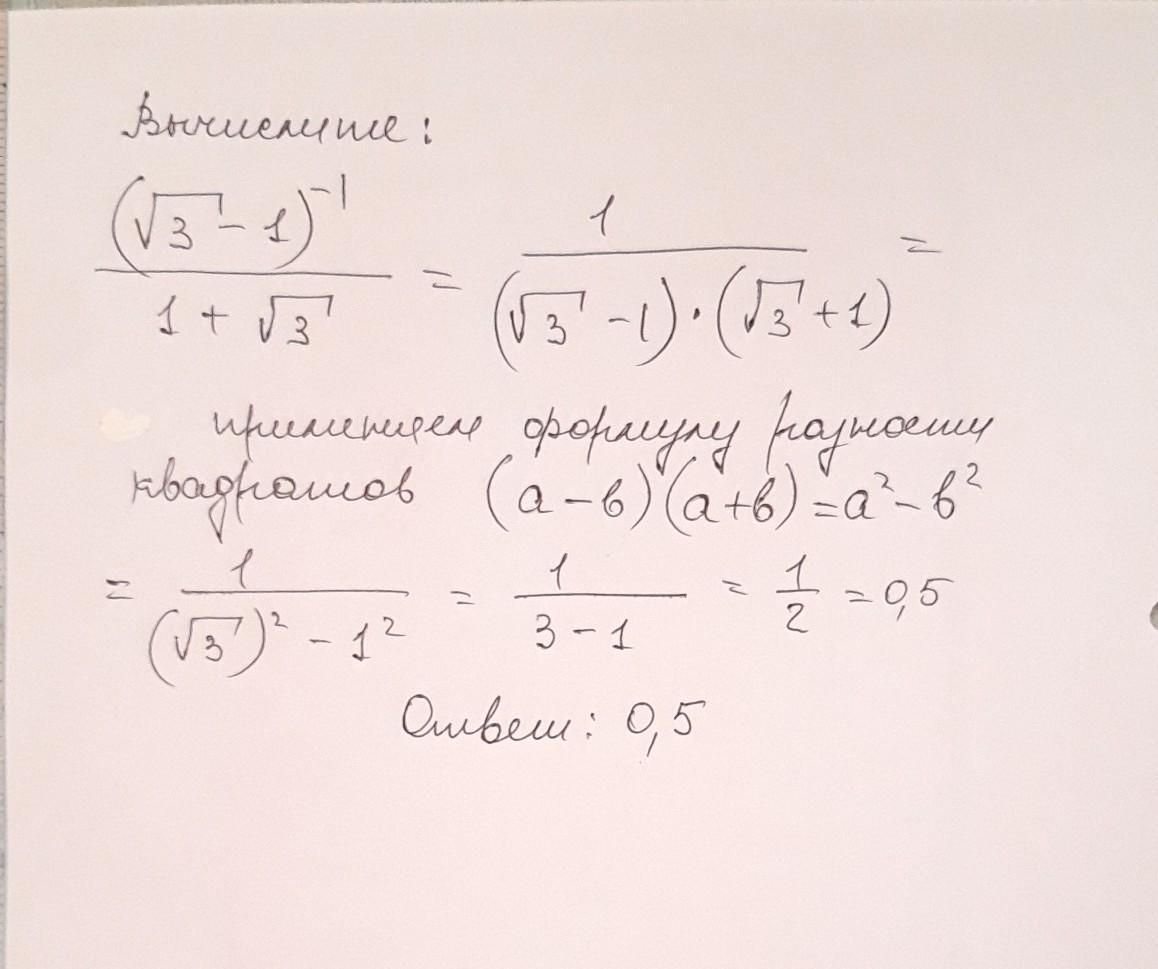 Вычислите:
(√3 - 1)⁻¹ / (1 + √3) = 1 / ((√3 - 1) · (√3 + 1)) =
применяем формулу разности
квадратов (a - в)(a + в) = a² - в²
= 1 / ((√3)² - 1²) = 1 / (3 - 1) = 1/2 = 0,5
Ответ: 0,5